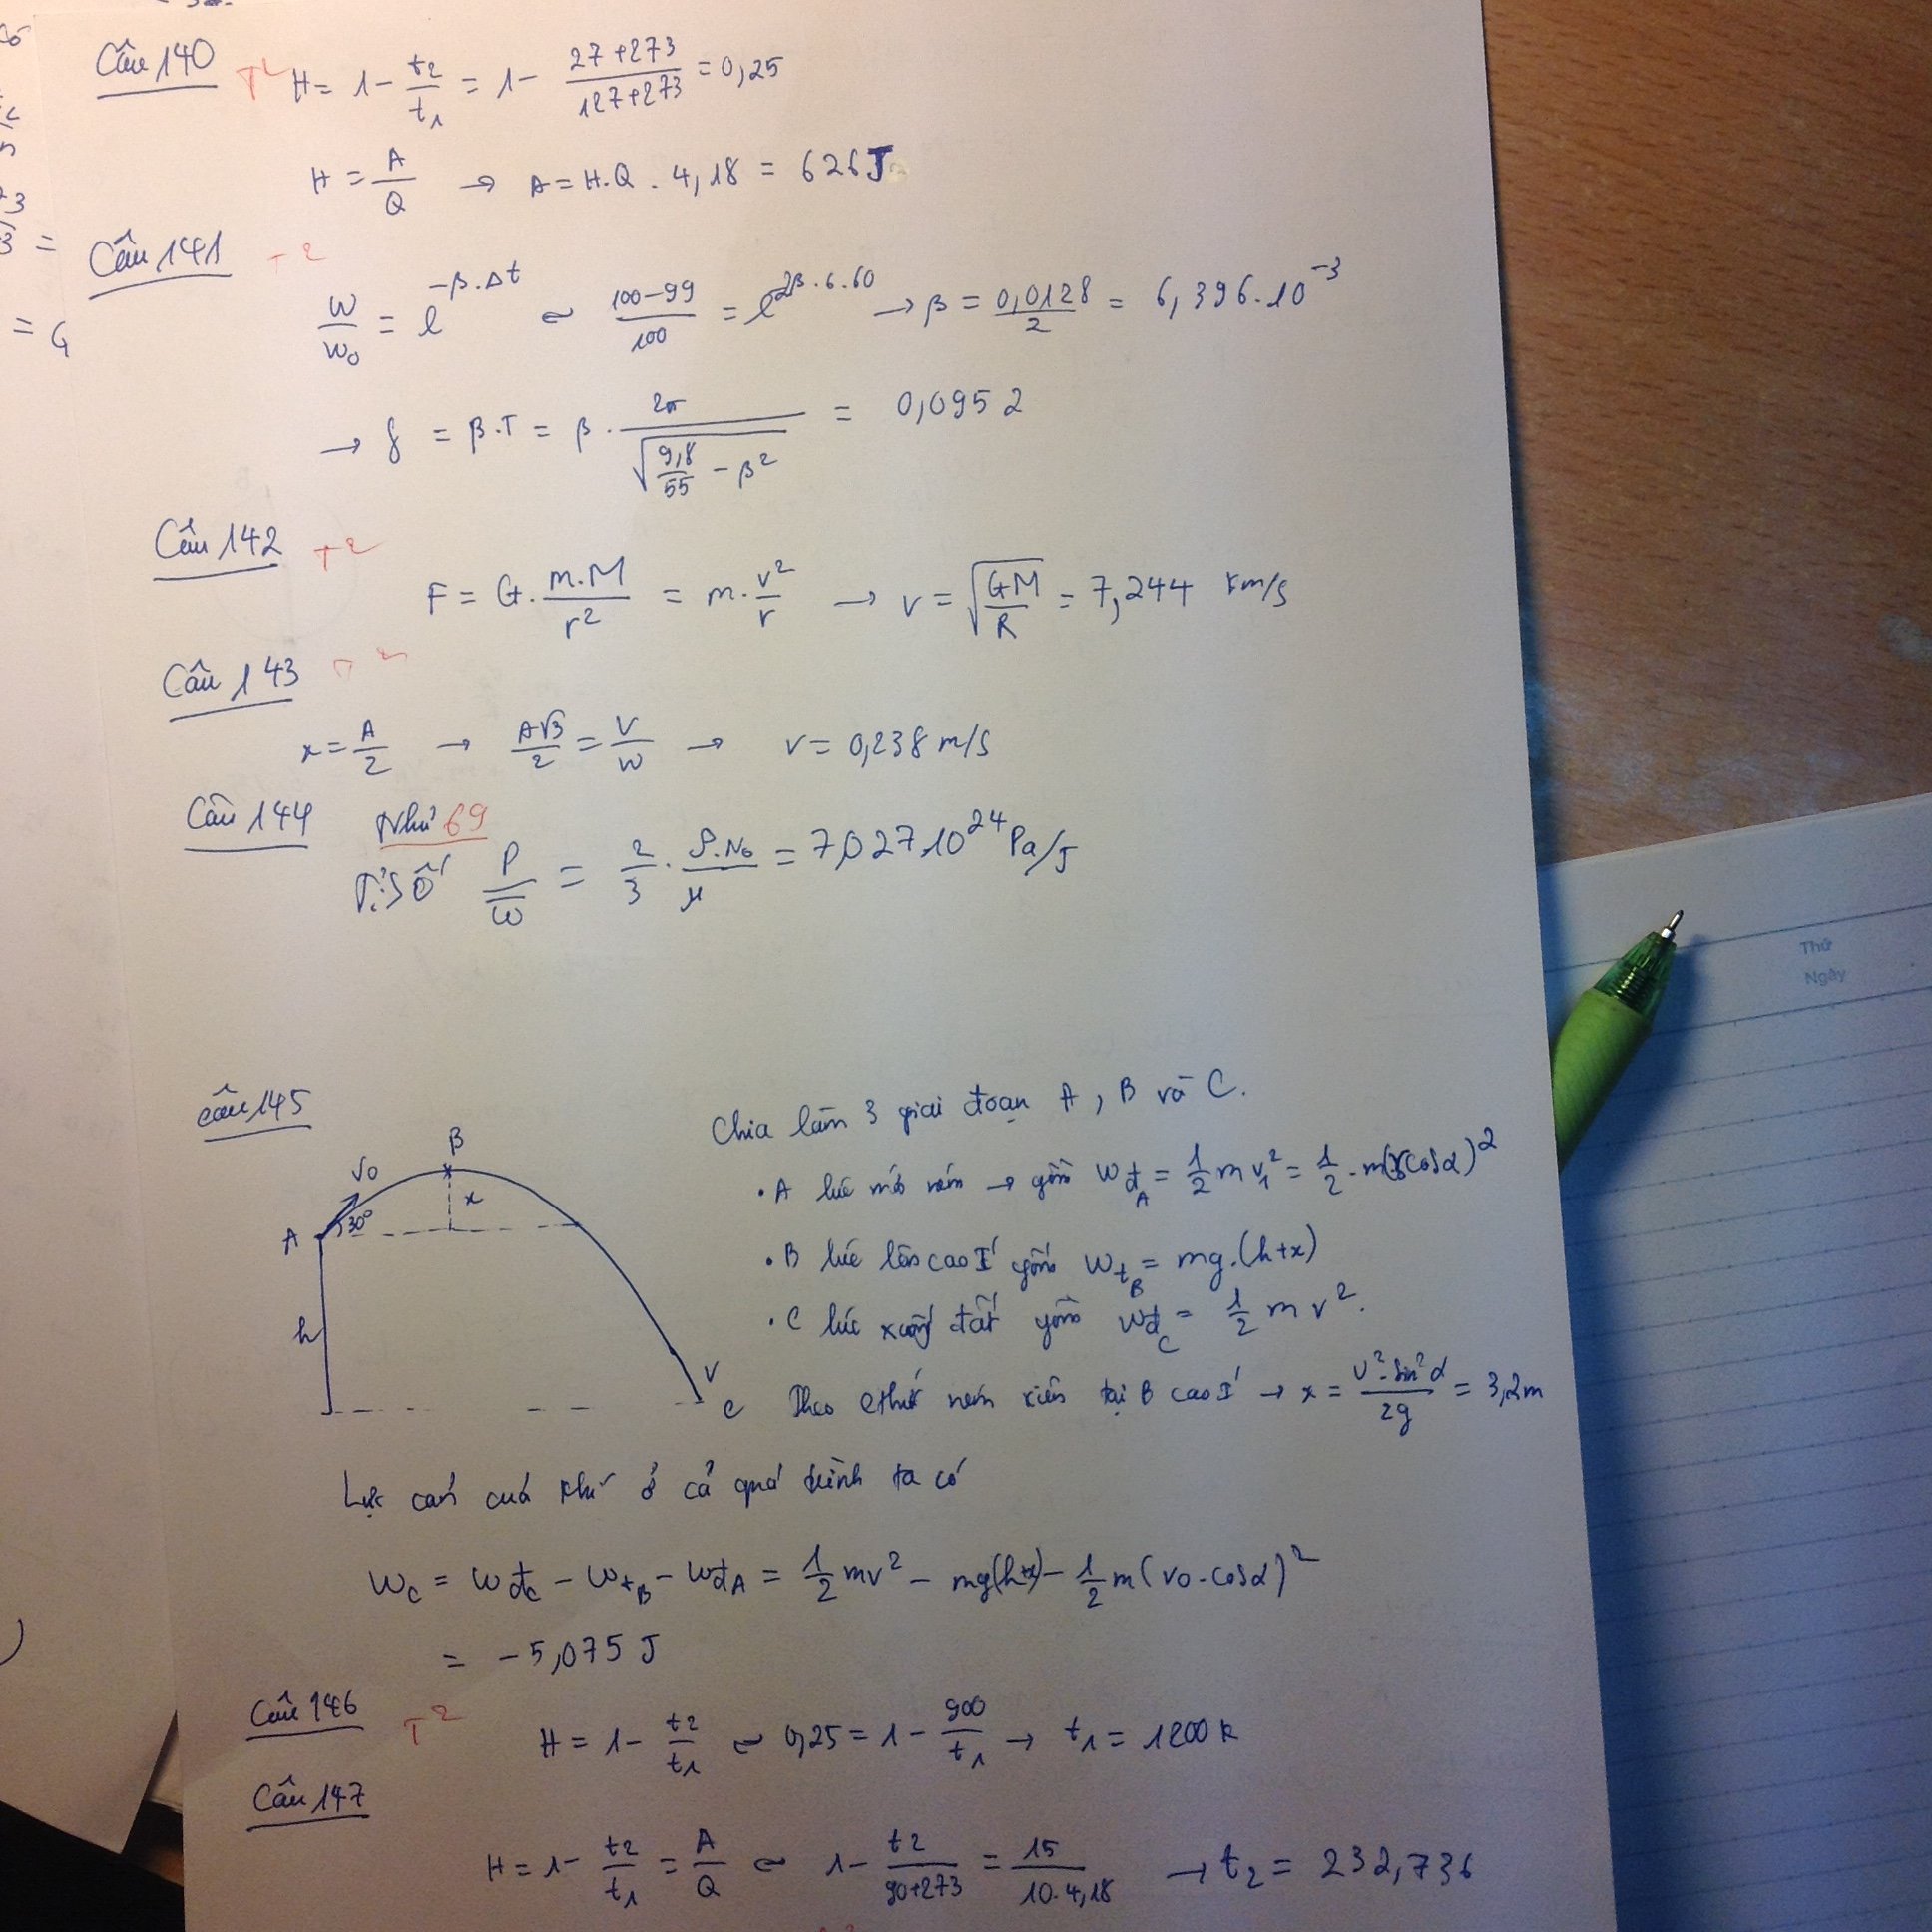 Câu 140 T²
H = 1 - t2/t1 = 1 - (27+273)/(127+273) = 0,25
H = A/Q → A = H.Q . 4,18 = 626 J
Câu 141 T²
W/W0 = e^(-β.Δt) ~ (100-99)/100 = e^(2β.6.60) → β = 0,0128/2 = 6,396.10^-3
→ δ = β.T = β . 2π/√(9,8/55 - β²) = 0,0952
Câu 142 T²
F = G. m.M/r² = m. v²/r → v = √(GM/R) = 7,244 km/s
Câu 143 T²
x = A/2 → A√3/2 = V/W → v = 0,238 m/s
Câu 144 Như 69
T.Số P/W = 2/3 . ρ.N0/μ = 7,027.10^24 Pa/J
Câu 145
Chia làm 3 giai đoạn A, B và C.
• A lúc mới ném → gồm WđA = 1/2 m v1² = 1/2 . m(v cosα)²
• B lúc lên cao I' gồm WtB = mg.(h+x)
• C lúc xuống đất gồm WđC = 1/2 m v².
Theo cthức ném xiên tại B cao I' → x = v².sin²α/2g = 3,2m
B
v0
x
A 30°
h
V
C
Lực cản của khí ở cả quá trình ta có
WC = WđC - WtB - WđA = 1/2 mv² - mg(h+x) - 1/2 m(v0.cosα)²
= -5,075 J
Câu 146 T²
H = 1 - t2/t1 ~ 0,25 = 1 - 900/t1 → t1 = 1200 K
Câu 147
H = 1 - t2/t1 = A/Q ~ 1 - t2/(90+273) = 15/(10.4,18) → t2 = 232,736
Thứ
Ngày